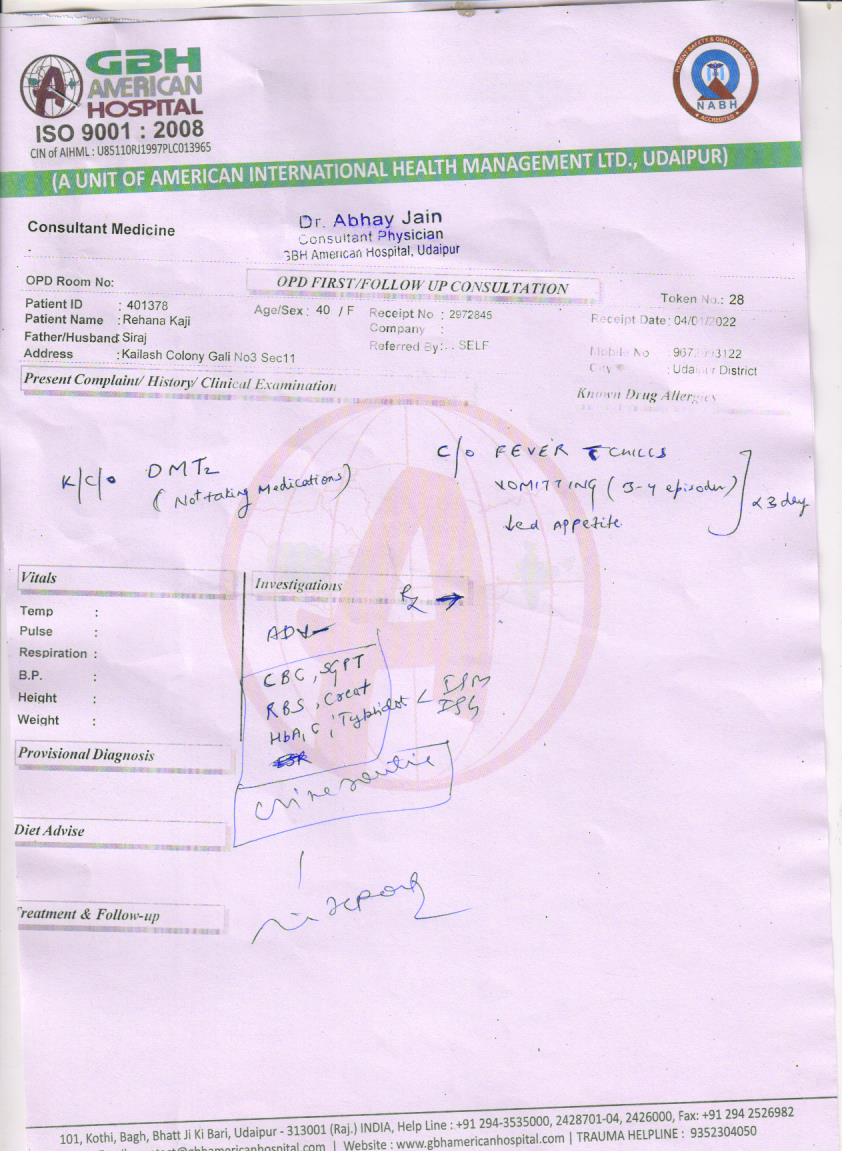 GBH
AMERICAN
HOSPITAL
ISO 9001 : 2008
CIN of AIHML : U85110RJ1997PLC013965
PATIENT SAFETY & QUALITY OF CARE
NABH
ACCREDITED
(A UNIT OF AMERICAN INTERNATIONAL HEALTH MANAGEMENT LTD., UDAIPUR)
Consultant Medicine
-
Dr. Abhay Jain
Consultant Physician
GBH American Hospital, Udaipur
OPD Room No:
OPD FIRST/FOLLOW UP CONSULTATION
Token No.: 28
Patient ID : 401378
Age/Sex : 40 / F
Receipt No : 2972845
Receipt Date : 04/01/2022
Patient Name : Rehana Kaji
Company :
Father/Husband: Siraj
Referred By: . SELF
Mobile No
Address : Kailash Colony Gali No3 Sec11
City : Udaipur District
Present Complaint/ History/ Clinical Examination
Known Drug Allergies
K/C/o DMT2
(Not taking Medications)
C/o FEVER c̄ CHILLS
VOMITTING (3-4 episodes)
↓ed Appetite
x 3 day
Vitals
Temp :
Pulse :
Respiration :
B.P. :
Height :
Weight :
Investigations
Rx →
ADV
CBC, SGPT
RBS, Creat
HbA1C, Typhidot < IgM
IgG
Urine routine
Provisional Diagnosis
Diet Advise
Treatment & Follow-up
101, Kothi, Bagh, Bhatt Ji Ki Bari, Udaipur - 313001 (Raj.) INDIA, Help Line : +91 294-3535000, 2428701-04, 2426000, Fax: +91 294 2526982
| Website : www.gbhamericanhospital.com | TRAUMA HELPLINE : 9352304050